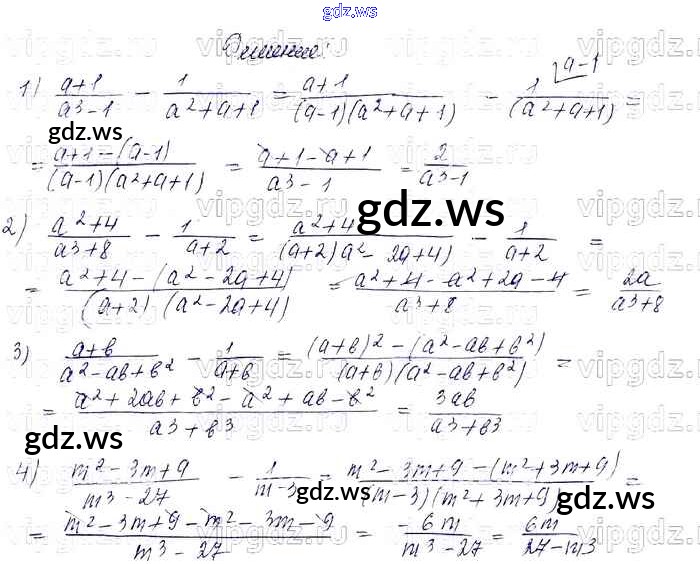 gdz.ws
Решение:
1) \frac{a+1}{a^3-1} - \frac{1}{a^2+a+1} = \frac{a+1}{(a-1)(a^2+a+1)} - \frac{1^{\backslash a-1}}{(a^2+a+1)} =
= \frac{a+1-(a-1)}{(a-1)(a^2+a+1)} = \frac{a+1-a+1}{a^3-1} = \frac{2}{a^3-1}
2) \frac{a^2+4}{a^3+8} - \frac{1}{a+2} = \frac{a^2+4}{(a+2)(a^2-2a+4)} - \frac{1}{a+2} =
= \frac{a^2+4-(a^2-2a+4)}{(a+2)(a^2-2a+4)} = \frac{a^2+4-a^2+2a-4}{a^3+8} = \frac{2a}{a^3+8}
3) \frac{a+b}{a^2-ab+b^2} - \frac{1}{a+b} = \frac{(a+b)^2-(a^2-ab+b^2)}{(a+b)(a^2-ab+b^2)} =
= \frac{a^2+2ab+b^2-a^2+ab-b^2}{a^3+b^3} = \frac{3ab}{a^3+b^3}
4) \frac{m^2-3m+9}{m^3-27} - \frac{1}{m-3} = \frac{m^2-3m+9-(m^2+3m+9)}{(m-3)(m^2+3m+9)} =
= \frac{m^2-3m+9-m^2-3m-9}{m^3-27} = \frac{-6m}{m^3-27} = \frac{6m}{27-m^3}
gdz.ws
gdz.ws
gdz.ws
gdz.ws
gdz.ws